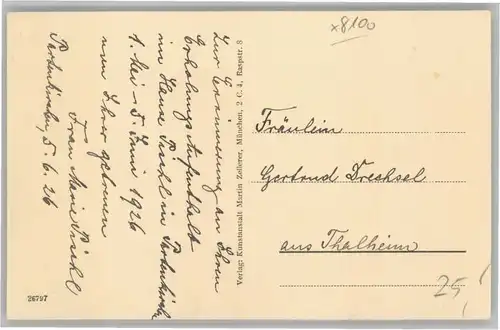 Zur Erinnerung an Ihren
Erholungs Aufenthalt
im Hause Pischl in Partenkirchen
1. Mai - 5. Juni 1926
von Ihrer getreuen
Frau Marie Pischl
Partenkirchen, 5.6.26
Verlag: Kunstanstalt Martin Zeilerer, München, 2 C. 4, Raspstr. 8
x8100
Fräulein
Gertrud Drechsel
aus Thalheim
25,
26797